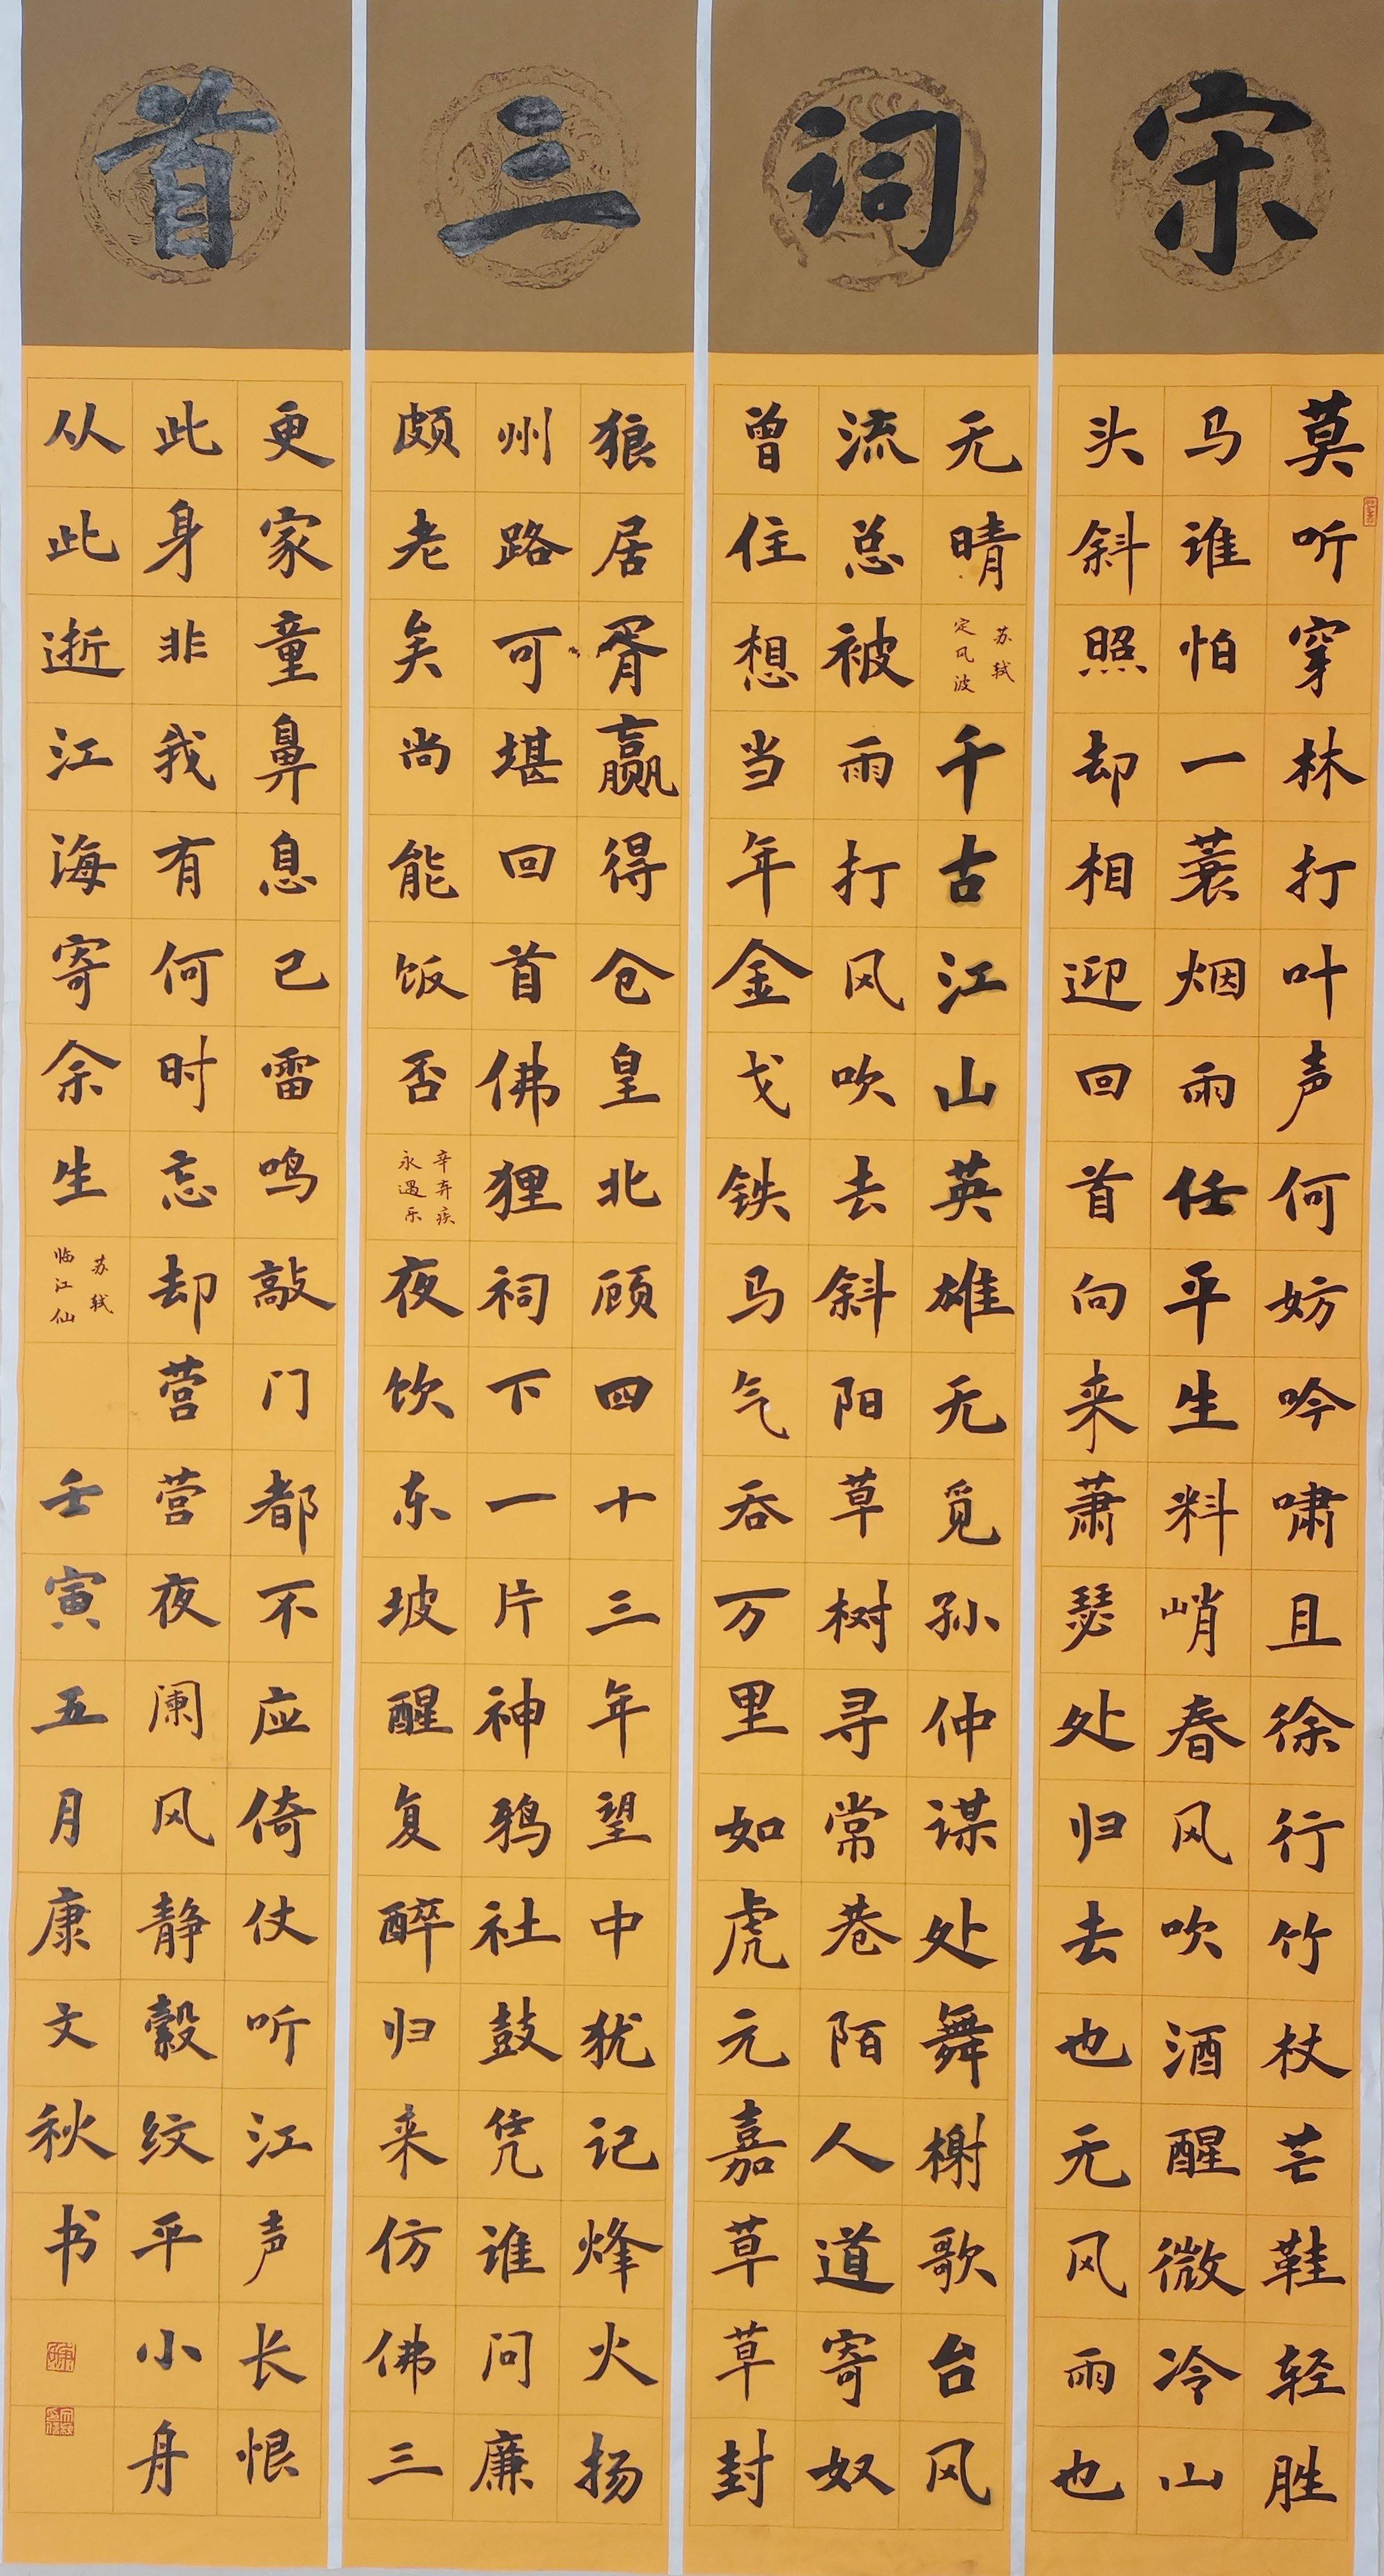 宋词三首
莫听穿林打叶声何妨吟啸且徐行竹杖芒鞋轻胜
马谁怕一蓑烟雨任平生料峭春风吹酒醒微冷山
头斜照却相迎回首向来萧瑟处归去也无风雨也
无晴
苏轼
定风波
千古江山英雄无觅孙仲谋处舞榭歌台风
流总被雨打风吹去斜阳草树寻常巷陌人道寄奴
曾住想当年金戈铁马气吞万里如虎元嘉草草封
狼居胥赢得仓皇北顾四十三年望中犹记烽火扬
州路可堪回首佛狸祠下一片神鸦社鼓凭谁问廉
颇老矣尚能饭否
辛弃疾
永遇乐
夜饮东坡醒复醉归来仿佛三
更家童鼻息已雷鸣敲门都不应倚仗听江声长恨
此身非我有何时忘却营营夜阑风静縠纹平小舟
从此逝江海寄余生
苏轼
临江仙
壬寅五月康文秋书